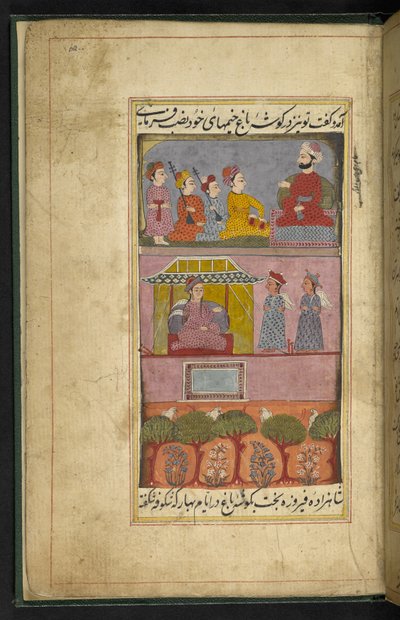 آمده گفت تو نیز در گوشهٔ باغ خیمهای خود نصب فرمای
شاهزاده فیروزه بخت بگوشهٔ باغ در ایام بهار که شکوفه شکفته